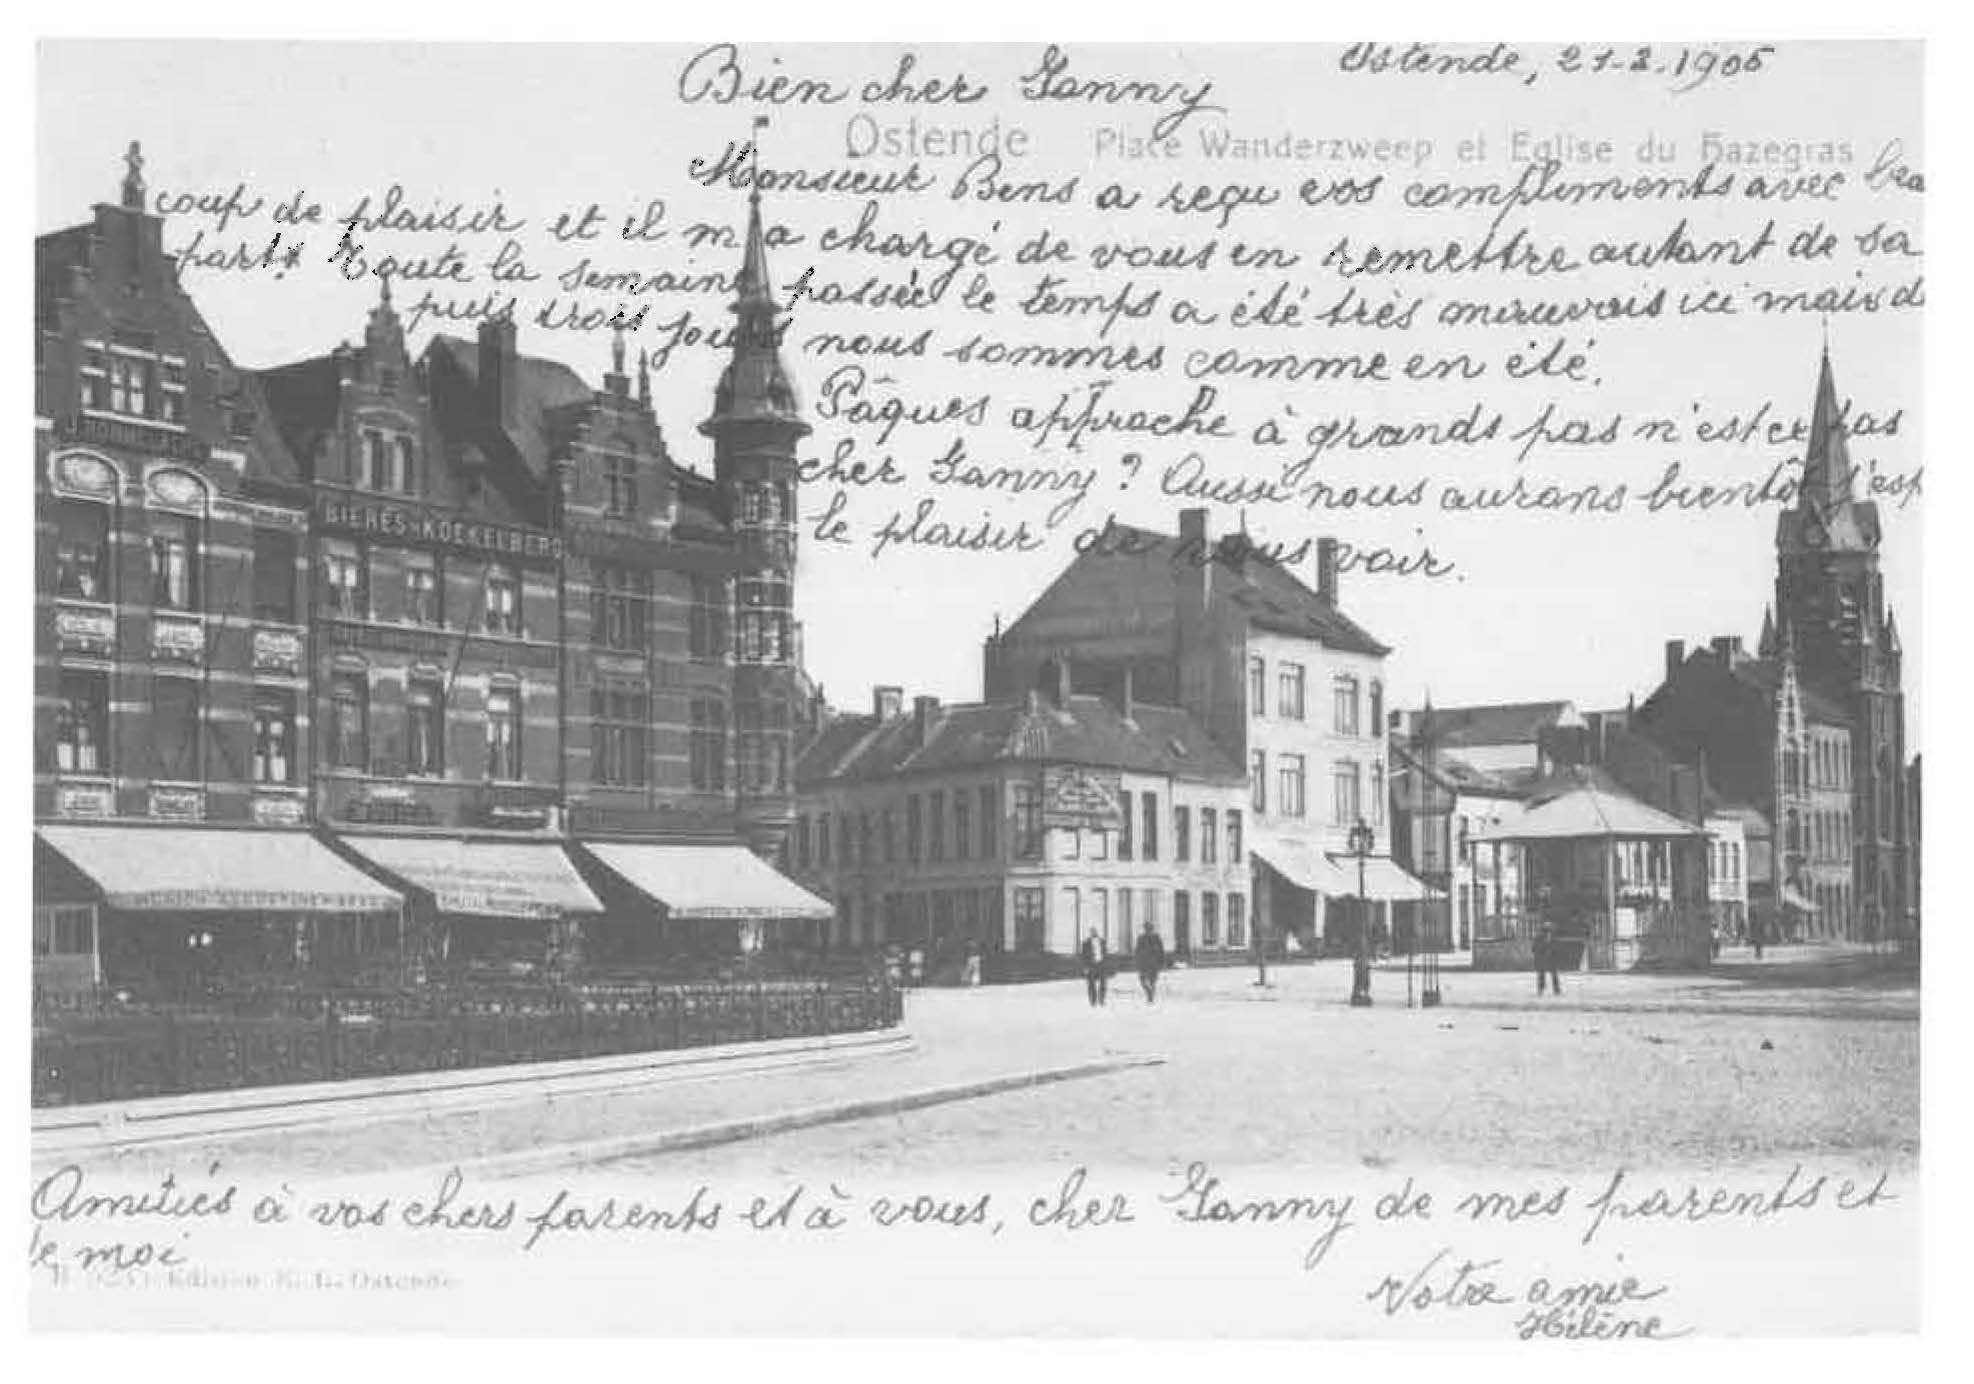 Ostende, 21-2-1905
Bien cher Ganny
Ostende Place Wanderzweep et Eglise du Hazegras
Monsieur Bens a reçu vos compliments avec beau
coup de plaisir et il m'a chargé de vous en remettre autant de sa
part. Toute la semaine passée le temps a été très mauvais ici mais de
puis trois jours nous sommes comme en été.
Pâques approche à grands pas n'est ce pas
cher Ganny ? Aussi nous aurons bientôt j'esp
le plaisir de vous voir.
BIERES-KOEKELBERG
Amitiés à vos chers parents et à vous, cher Ganny de mes parents et
de moi
Edition Ostende
Votre amie
Hélène